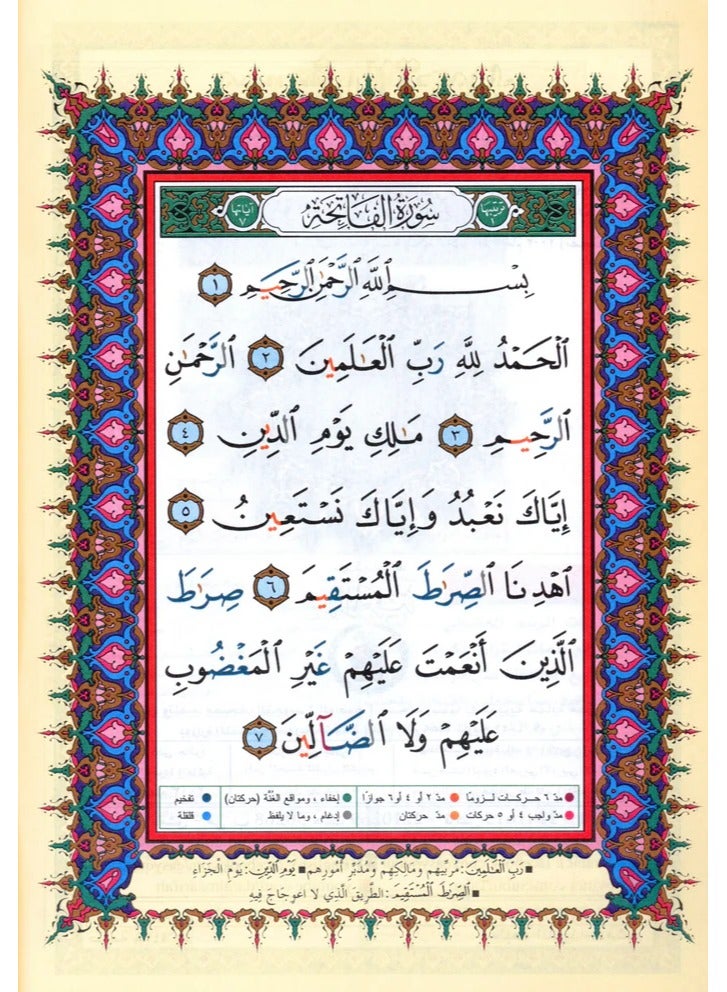 ترتيبها ١ سُورَةُ الفَاتِحَة آياتها ٧
بِسْمِ ٱللَّهِ ٱلرَّحْمَٰنِ ٱلرَّحِيمِ ١
ٱلْحَمْدُ لِلَّهِ رَبِّ ٱلْعَٰلَمِينَ ٢ ٱلرَّحْمَٰنِ
ٱلرَّحِيمِ ٣ مَٰلِكِ يَوْمِ ٱلدِّينِ ٤
إِيَّاكَ نَعْبُدُ وَإِيَّاكَ نَسْتَعِينُ ٥
ٱهْدِنَا ٱلصِّرَٰطَ ٱلْمُسْتَقِيمَ ٦ صِرَٰطَ
ٱلَّذِينَ أَنْعَمْتَ عَلَيْهِمْ غَيْرِ ٱلْمَغْضُوبِ
عَلَيْهِمْ وَلَا ٱلضَّآلِّينَ ٧
مدّ ٦ حركات لزومًا مدّ ٢ أو ٤ أو ٦ جوازًا إخفاء، ومواقع الغُنَّة (حركتان) تفخيم
مدّ واجب ٤ أو ٥ حركات مدّ حركتان إدغام، وما لا يلفظ قلقلة
رَبِّ ٱلْعَٰلَمِينَ: مُربِّيهم ومالِكِهم ومُدبِّرِ أمُورِهم يَوْمِ ٱلدِّينِ: يَوْمِ الجَزَاءِ
ٱلصِّرَٰطَ ٱلْمُسْتَقِيمَ: الطَّرِيقَ الَّذِي لا اعوِجَاجَ فِيهِ